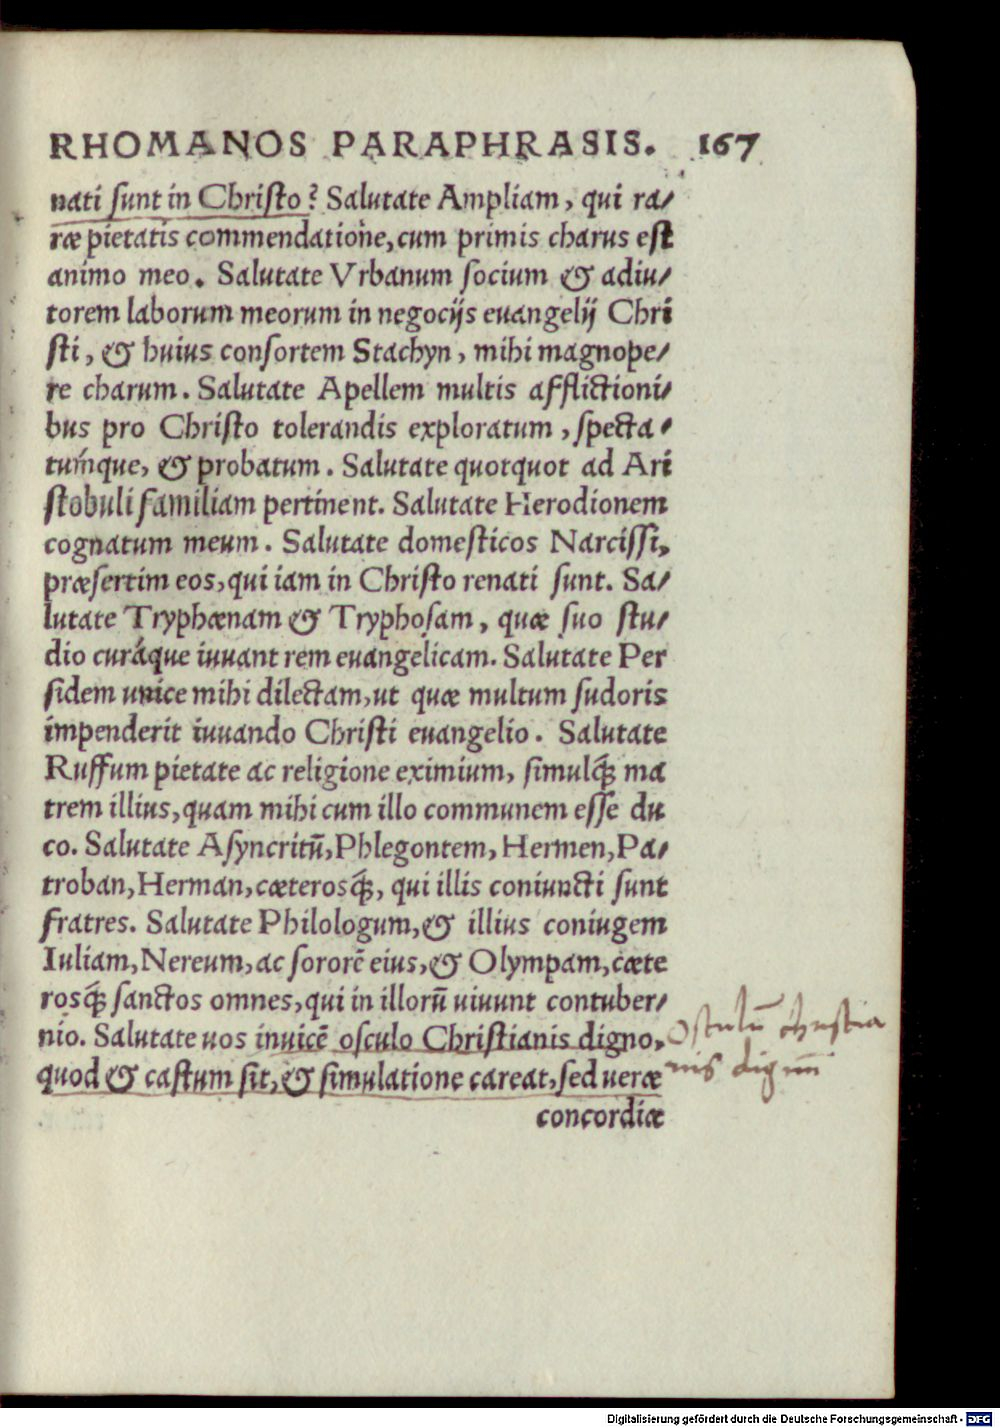 RHOMANOS PARAPHRASIS. 167
nati sunt in Christo? Salutate Ampliam, qui ra/
ræ pietatis commendatione, cum primis charus est
animo meo. Salutate Vrbanum socium & adiu/
torem laborum meorum in negocijs euangelij Chri
sti, & huius consortem Stachyn, mihi magnope/
re charum. Salutate Apellem multis afflictioni/
bus pro Christo tolerandis exploratum, specta/
túmque, & probatum. Salutate quotquot ad Ari
stobuli familiam pertinent. Salutate Herodionem
cognatum meum. Salutate domesticos Narcissi,
præsertim eos, qui iam in Christo renati sunt. Sa/
lutate Tryphænam & Tryphosam, quæ suo stu/
dio curáque iuuant rem euangelicam. Salutate Per
sidem unice mihi dilectam, ut quæ multum sudoris
impenderit iuuando Christi euangelio. Salutate
Ruffum pietate ac religione eximium, simulq́; ma
trem illius, quam mihi cum illo communem esse du
co. Salutate Asyncritū, Phlegontem, Hermen, Pa/
troban, Herman, cæterosq́;, qui illis coniuncti sunt
fratres. Salutate Philologum, & illius coniugem
Iuliam, Nereum, ac sororē eius, & Olympam, cæte
rosq́; sanctos omnes, qui in illorū uiuunt contuber/
nio. Salutate uos inuicē osculo Christianis digno,
quod & castum sit, & simulatione careat, sed ueræ
concordiæ
Osculū christia
nis dignū
Digitalisierung gefördert durch die Deutsche Forschungsgemeinschaft - DFG